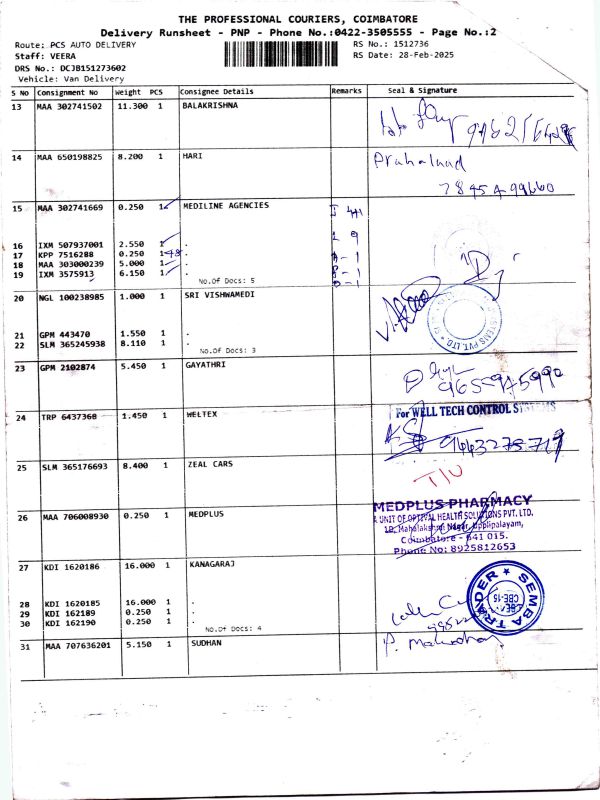 THE PROFESSIONAL COURIERS, COIMBATORE
Delivery Runsheet - PNP - Phone No.:0422-3505555 - Page No.:2
Route: PCS AUTO DELIVERY RS No.: 1512736
Staff: VEERA RS Date: 28-Feb-2025
DRS No.: DCJB151273602
Vehicle: Van Delivery
S No Consignment No Weight PCS Consignee Details Remarks Seal & Signature
13 MAA 302741502 11.300 1 BALAKRISHNA
14 MAA 650198825 8.200 1 HARI Prahalaad
78454 99660
15 MAA 302741669 0.250 1 MEDILINE AGENCIES
16 IXM 507937001 2.550 1 .
17 KPP 7516288 0.250 1 .
18 MAA 303000239 5.000 1 .
19 IXM 3575913 6.150 1 .
No.Of Docs: 5
20 NGL 100238985 1.000 1 SRI VISHWAMEDI
21 GPM 443470 1.550 1 .
22 SLM 365245938 8.110 1 .
No.Of Docs: 3
23 GPM 2102874 5.450 1 GAYATHRI
24 TRP 6437360 1.450 1 WELTEX For WELL TECH CONTROL SYSTEMS
25 SLM 365176693 8.400 1 ZEAL CARS
26 MAA 706008930 0.250 1 MEDPLUS MEDPLUS PHARMACY
A UNIT OF OPTIVAL HEALTH SOLUTIONS PVT. LTD.
Mahalakshmi Nagar, Upplipalayam,
Coimbatore - 641 015.
Phone No: 8925812653
27 KDI 1620186 16.000 1 KANAGARAJ
SEMBA TRADER
28 KDI 1620185 16.000 1 .
29 KDI 162189 0.250 1 .
30 KDI 162190 0.250 1 .
No.Of Docs: 4
31 MAA 707636201 5.150 1 SUDHAN